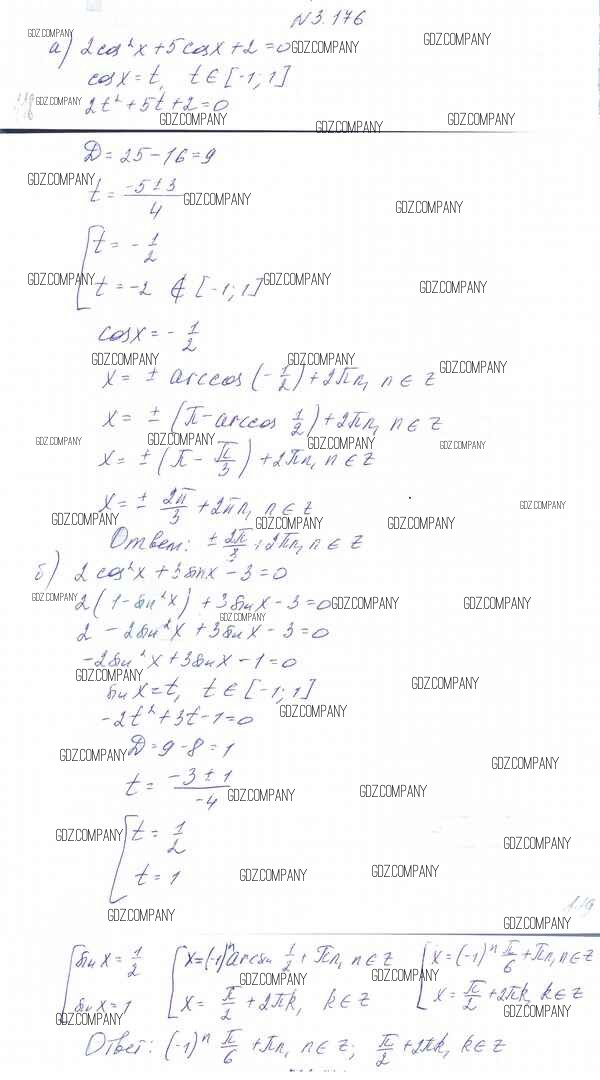 N 3.176
GDZ.COMPANY
а) 2cos²x + 5cosx + 2 = 0 GDZ.COMPANY GDZ.COMPANY
cosx = t, t ∈ [-1; 1]
GDZ.COMPANY 2t² + 5t + 2 = 0
GDZ.COMPANY GDZ.COMPANY GDZ.COMPANY
D = 25 - 16 = 9
GDZ.COMPANY
t = (-5 ± 3)/4 GDZ.COMPANY GDZ.COMPANY
[ t = -1/2
GDZ.COMPANY t = -2 ∉ [-1; 1] GDZ.COMPANY GDZ.COMPANY
cosx = -1/2
GDZ.COMPANY GDZ.COMPANY GDZ.COMPANY
x = ± arccos(-1/2) + 2πn, n ∈ Z
x = ± (π - arccos 1/2) + 2πn, n ∈ Z
GDZ.COMPANY GDZ.COMPANY GDZ.COMPANY GDZ.COMPANY
x = ± (π - π/3) + 2πn, n ∈ Z
x = ± 2π/3 + 2πn, n ∈ Z GDZ.COMPANY
GDZ.COMPANY GDZ.COMPANY GDZ.COMPANY
Ответ: ± 2π/3 + 2πn, n ∈ Z
б) 2cos²x + 3sinx - 3 = 0
GDZ.COMPANY 2(1 - sin²x) + 3sinx - 3 = 0 GDZ.COMPANY GDZ.COMPANY
GDZ.COMPANY
2 - 2sin²x + 3sinx - 3 = 0
-2sin²x + 3sinx - 1 = 0
GDZ.COMPANY GDZ.COMPANY
sinx = t, t ∈ [-1; 1]
-2t² + 3t - 1 = 0 GDZ.COMPANY
GDZ.COMPANY D = 9 - 8 = 1 GDZ.COMPANY
t = (-3 ± 1)/-4 GDZ.COMPANY GDZ.COMPANY
GDZ.COMPANY [ t = 1/2 GDZ.COMPANY
t = 1 GDZ.COMPANY GDZ.COMPANY
GDZ.COMPANY GDZ.COMPANY
[ sinx = 1/2 [ x = (-1)ⁿ arcsin 1/2 + πn, n ∈ Z [ x = (-1)ⁿ π/6 + πn, n ∈ Z
GDZ.COMPANY GDZ.COMPANY
sinx = 1 x = π/2 + 2πk, k ∈ Z x = π/2 + 2πk, k ∈ Z
GDZ.COMPANY GDZ.COMPANY
Ответ: (-1)ⁿ π/6 + πn, n ∈ Z; π/2 + 2πk, k ∈ Z